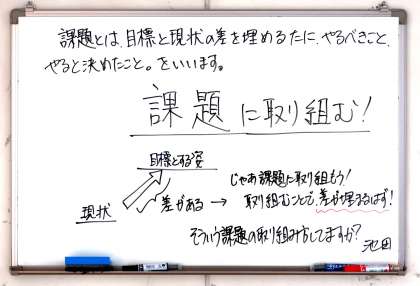 課題とは、目標と現状の差を埋めるたに、やるべきこと、
やると決めたこと。をいいます。
課題に取り組む!
目標とする姿
じゃあ課題に取り組もう!
現状
差がある → 取り組むことで、差が埋まるはず!
そういう課題の取り組み方してますか?
池田